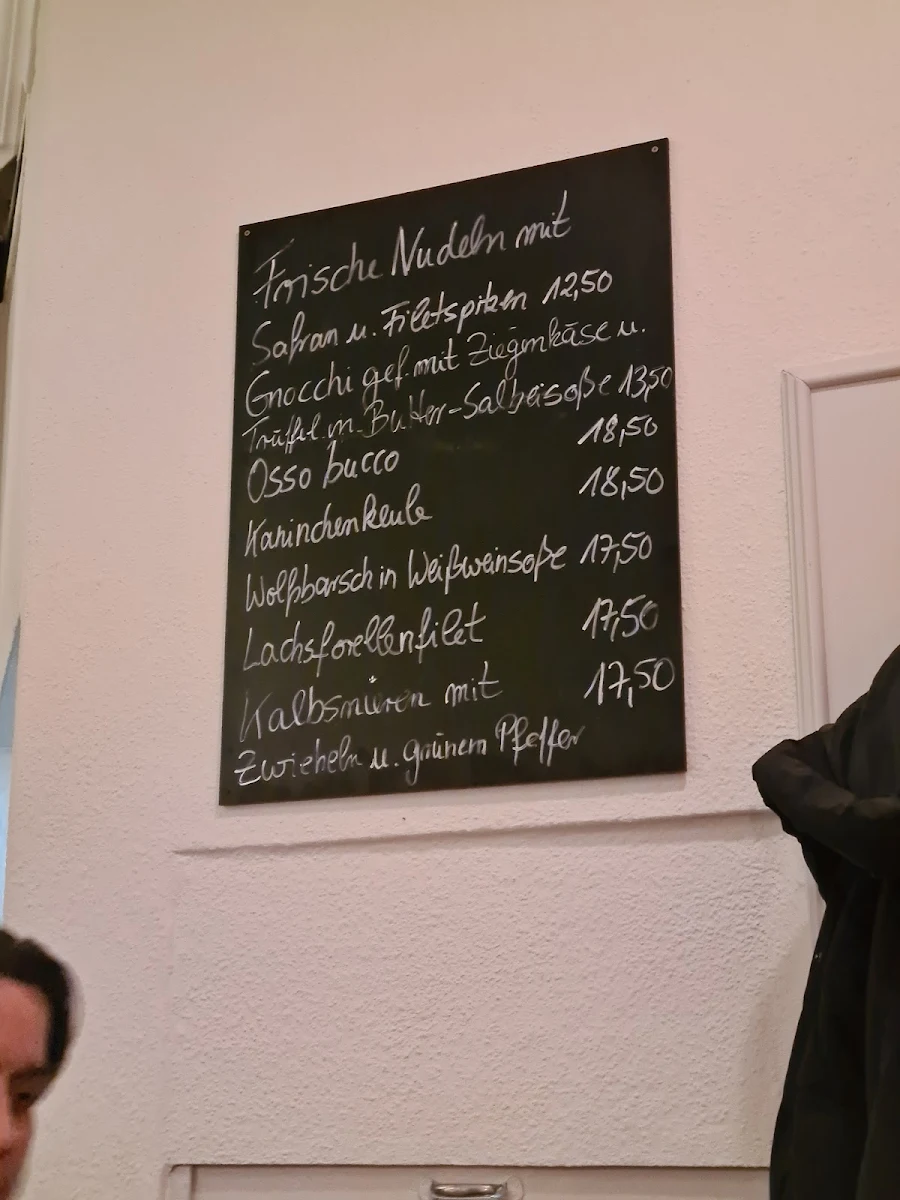 Frische Nudeln mit
Safran u. Filetspitzen 12,50
Gnocchi gef. mit Ziegenkäse u.
Trüffel in Butter-Salbeisoße 13,50
Osso bucco 18,50
Kaninchenkeule 18,50
Wolfsbarsch in Weißweinsoße 17,50
Lachsforellenfilet 17,50
Kalbsnieren mit 17,50
Zwiebeln u. grünem Pfeffer